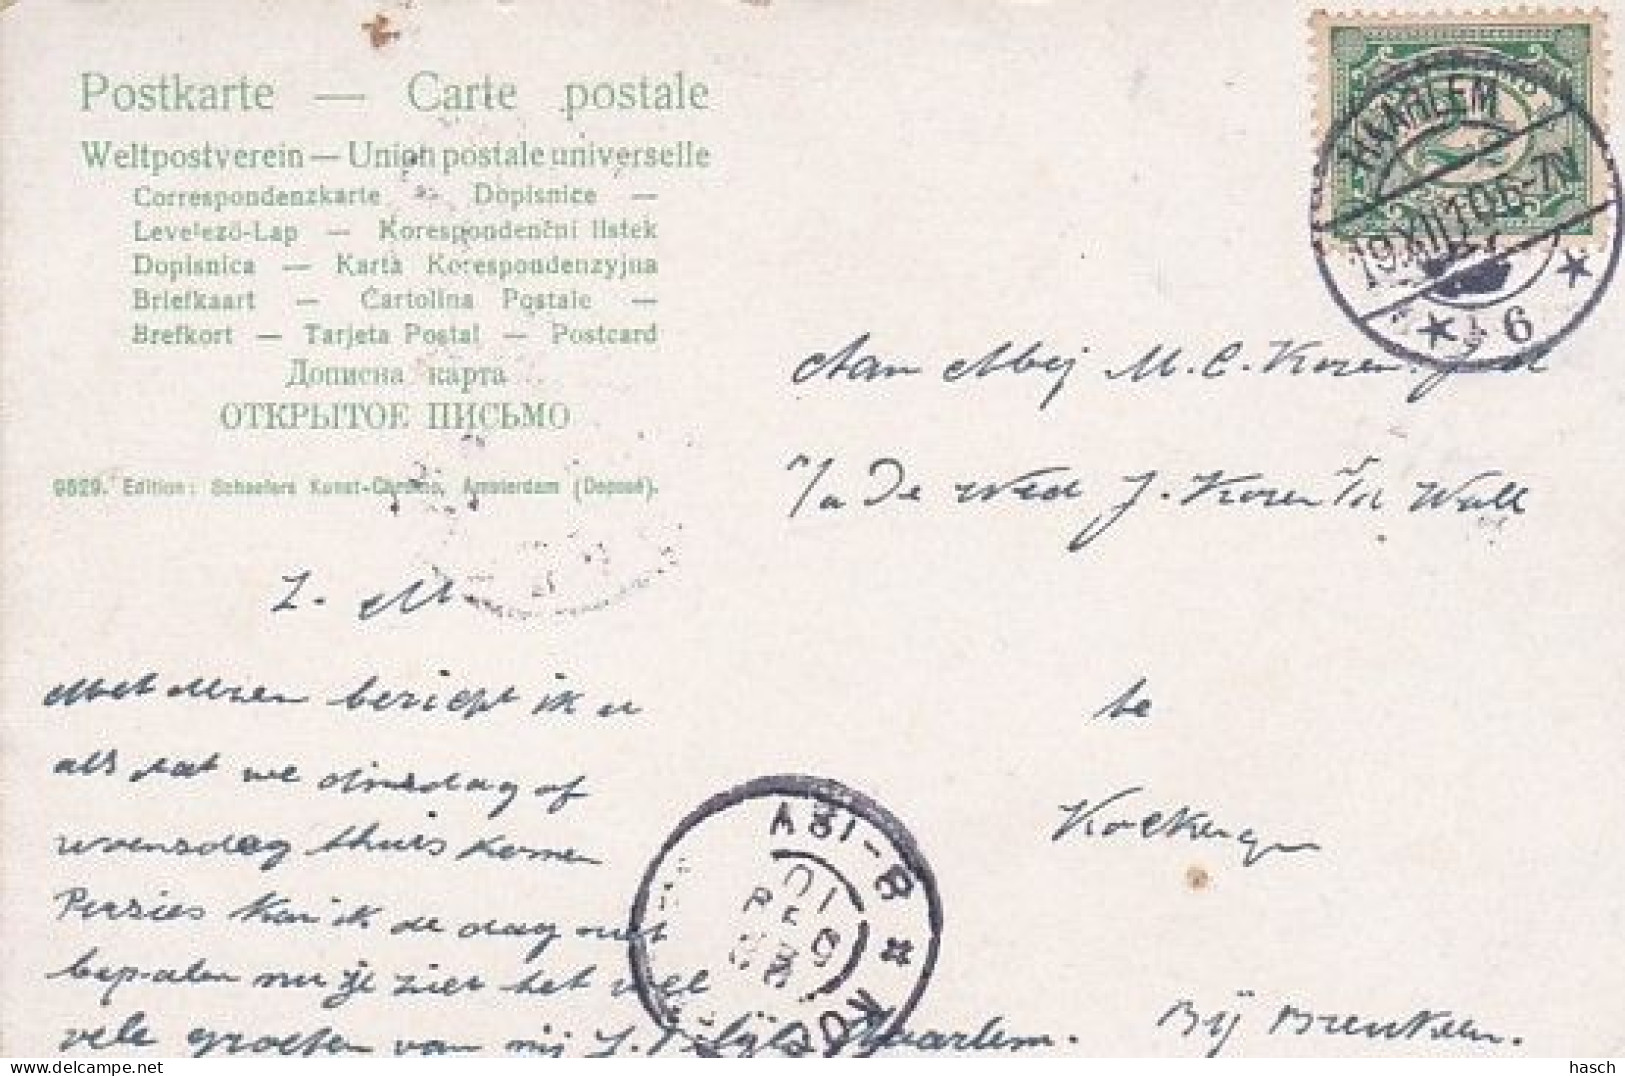 Postkarte — Carte postale
Weltpostverein — Union postale universelle
Correspondenzkarte — Dopisnice —
Levelező-Lap — Korespondenční listek
Dopisnica — Karta Korespondenzyjna
Briefkaart — Cartolina Postale —
Brefkort — Tarjeta Postal — Postcard
Дописна карта
ОТКРЫТОЕ ПИСЬМО
9629. Edition: Schaefers Kunst-Chromo, Amsterdam (Deposé).
HAARLEM
19.XII.10 6-7N
6
Aan Mej M. C. Koren
J. Koren
Z. M
Met dezen bericht ik u
als dat we dinsdag of
woensdag thuis komen
Persies kan ik de dag niet
bepalen nu je ziet het wel
vele groeten van mij Haarlem.
te
Kockengen
Bij Breukelen.
8-1
hasch